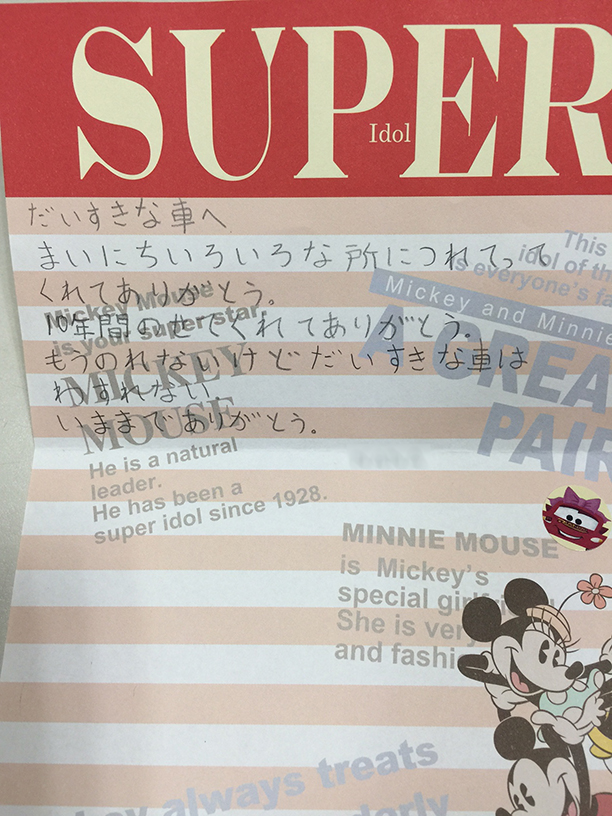 SUPER
Idol
だいすきな車へ
まいにちいろいろな所につれてって
くれてありがとう。
10年間のせてくれてありがとう。
もうのれないけどだいすきな車は
わすれない
いままでありがとう。
This
idol of th
is everyone's fa
Mickey and Minnie
A GREA
PAIR
Mickey Mouse
is your super star.
MICKEY
MOUSE
He is a natural
leader.
He has been a
super idol since 1928.
MINNIE MOUSE
is Mickey's
special girlfriend
She is very
and fashi
y always treats
derly